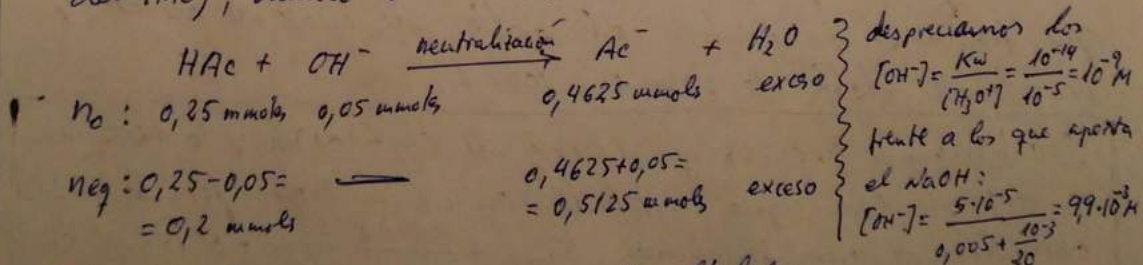 HAc + OH⁻ neutralización → Ac⁻ + H₂O
n₀ : 0,25 mmoles 0,05 mmoles 0,4625 mmoles exceso
neq : 0,25-0,05= — 0,4625+0,05= exceso
= 0,2 mmoles = 0,5125 mmoles
despreciamos los
[OH⁻]= Kw/[H₃O⁺] = 10⁻¹⁴/10⁻⁵ = 10⁻⁹ M
frente a los que aporta
el NaOH:
[OH⁻]= 5·10⁻⁵/(0,005+10⁻³/20) = 9,9·10⁻³ M